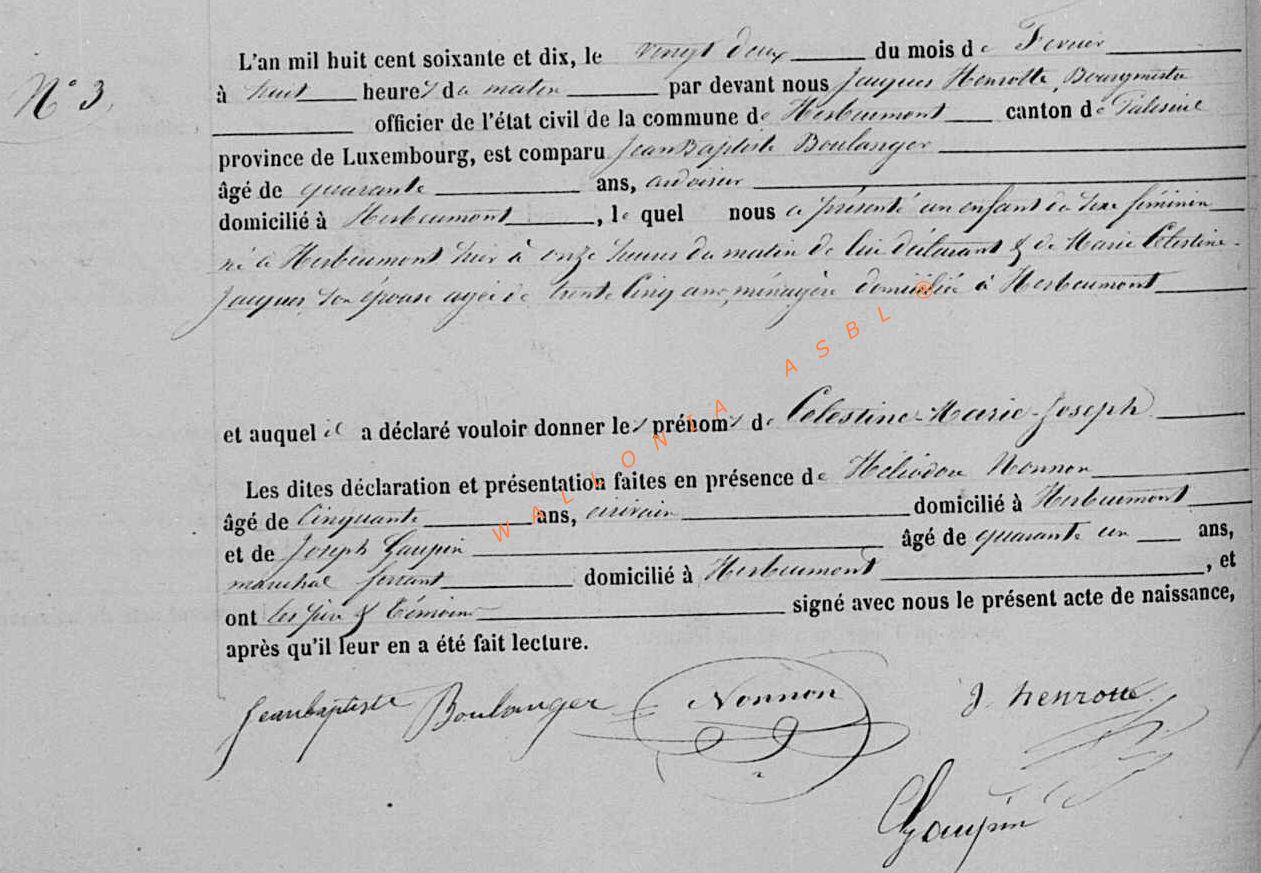 N° 3.
L'an mil huit cent soixante et dix, le vingt deux du mois de Fevrier
à huit heures du matin par devant nous Jacques Henrotte, Bourgmestre
officier de l'état civil de la commune de Herbeumont canton de Paliseul
province de Luxembourg, est comparu Jean Baptiste Boulanger
âgé de quarante ans, ardoisier
domicilié à Herbeumont, le quel nous a présenté un enfant du sexe féminin
né à Herbeumont hier à onze heures du matin de lui déclarant & de Marie Célestine
Jacques son épouse agée de trente cinq ans, ménagère domiciliée à Herbeumont
et auquel il a déclaré vouloir donner les prénoms de Célestine-Marie-Joseph
Les dites déclaration et présentation faites en présence de Héliodore Nonnon
âgé de cinquante ans, écrivain domicilié à Herbeumont
et de Joseph Gaupin âgé de quarante un ans,
maréchal ferrant domicilié à Herbeumont, et
ont les père & témoins signé avec nous le présent acte de naissance,
après qu'il leur en a été fait lecture.
Jeanbaptiste Boulanger Nonnon J. henrotte
Gaupin
WALLONIA ASBL ®